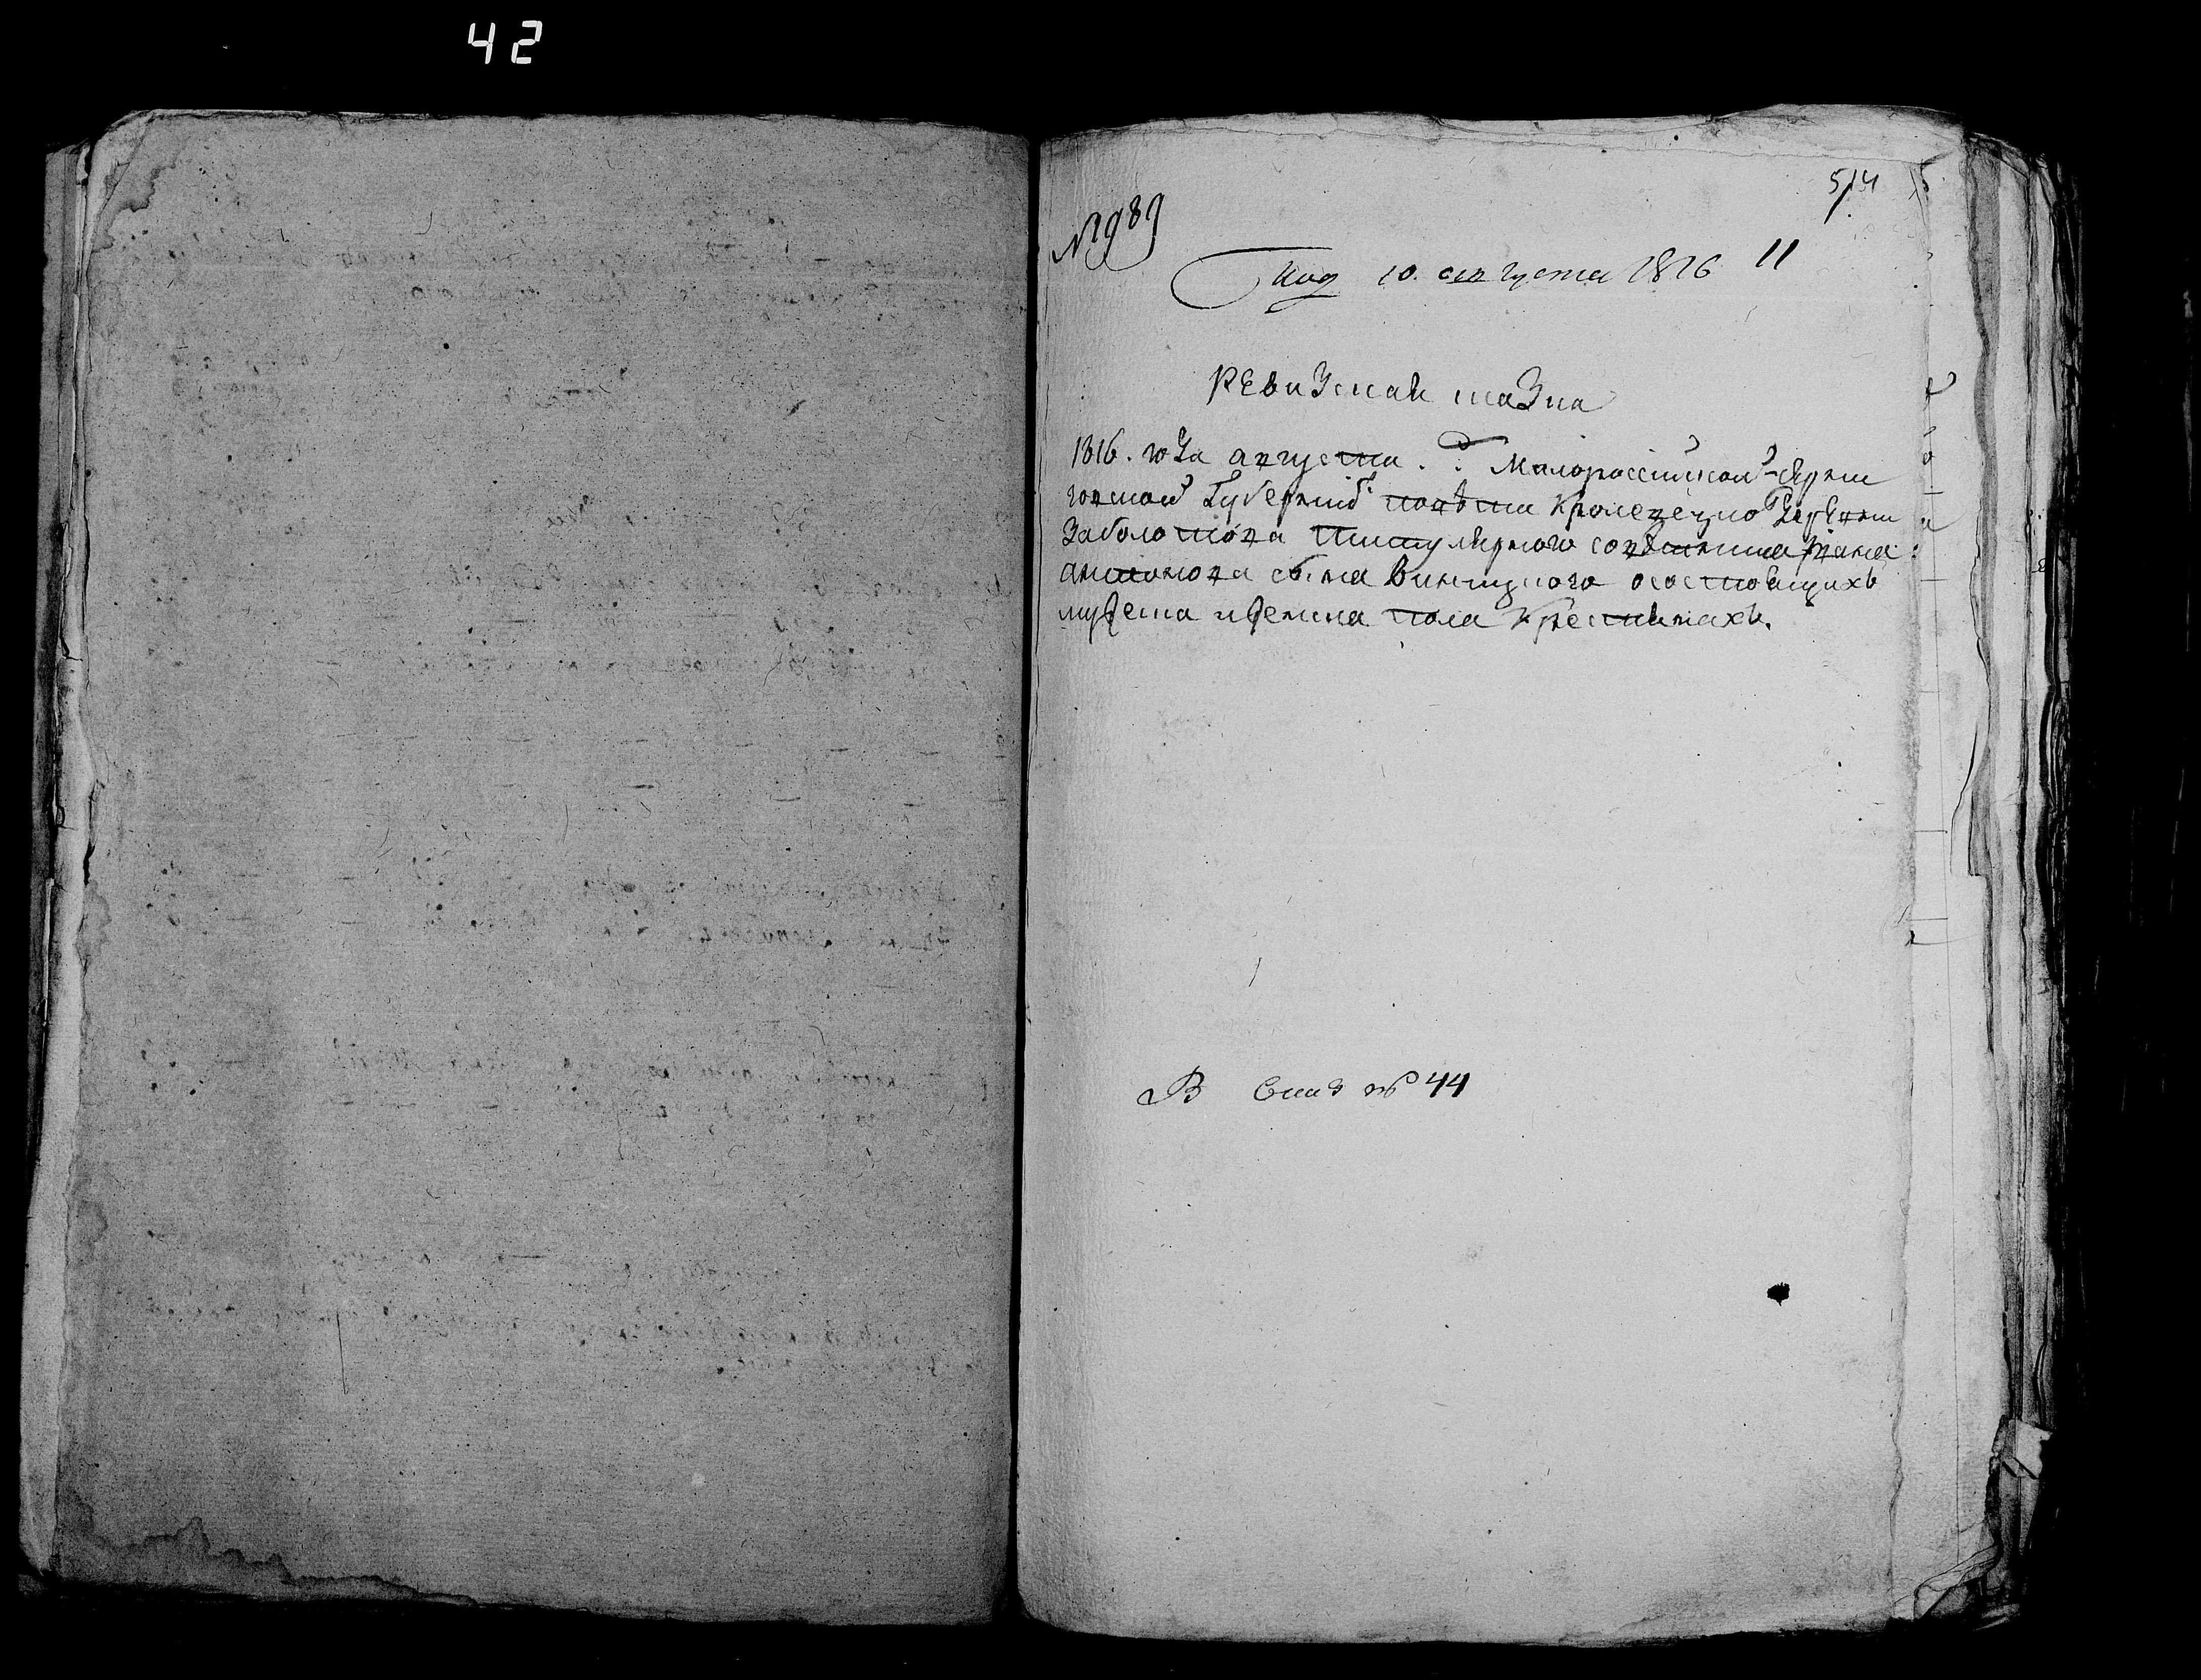 42
514
№ 989
Под 10. августа 1816 11
Ревизская сказка
1816. года августа. Малороссийской Черни
говской Губернии повета Кролевецкого Деревни
Заболотова Титулярного советника Ивана
антонова сына Винцкого осостоящихъ
мужеска иженска пола Крестьянахъ.
В № 44